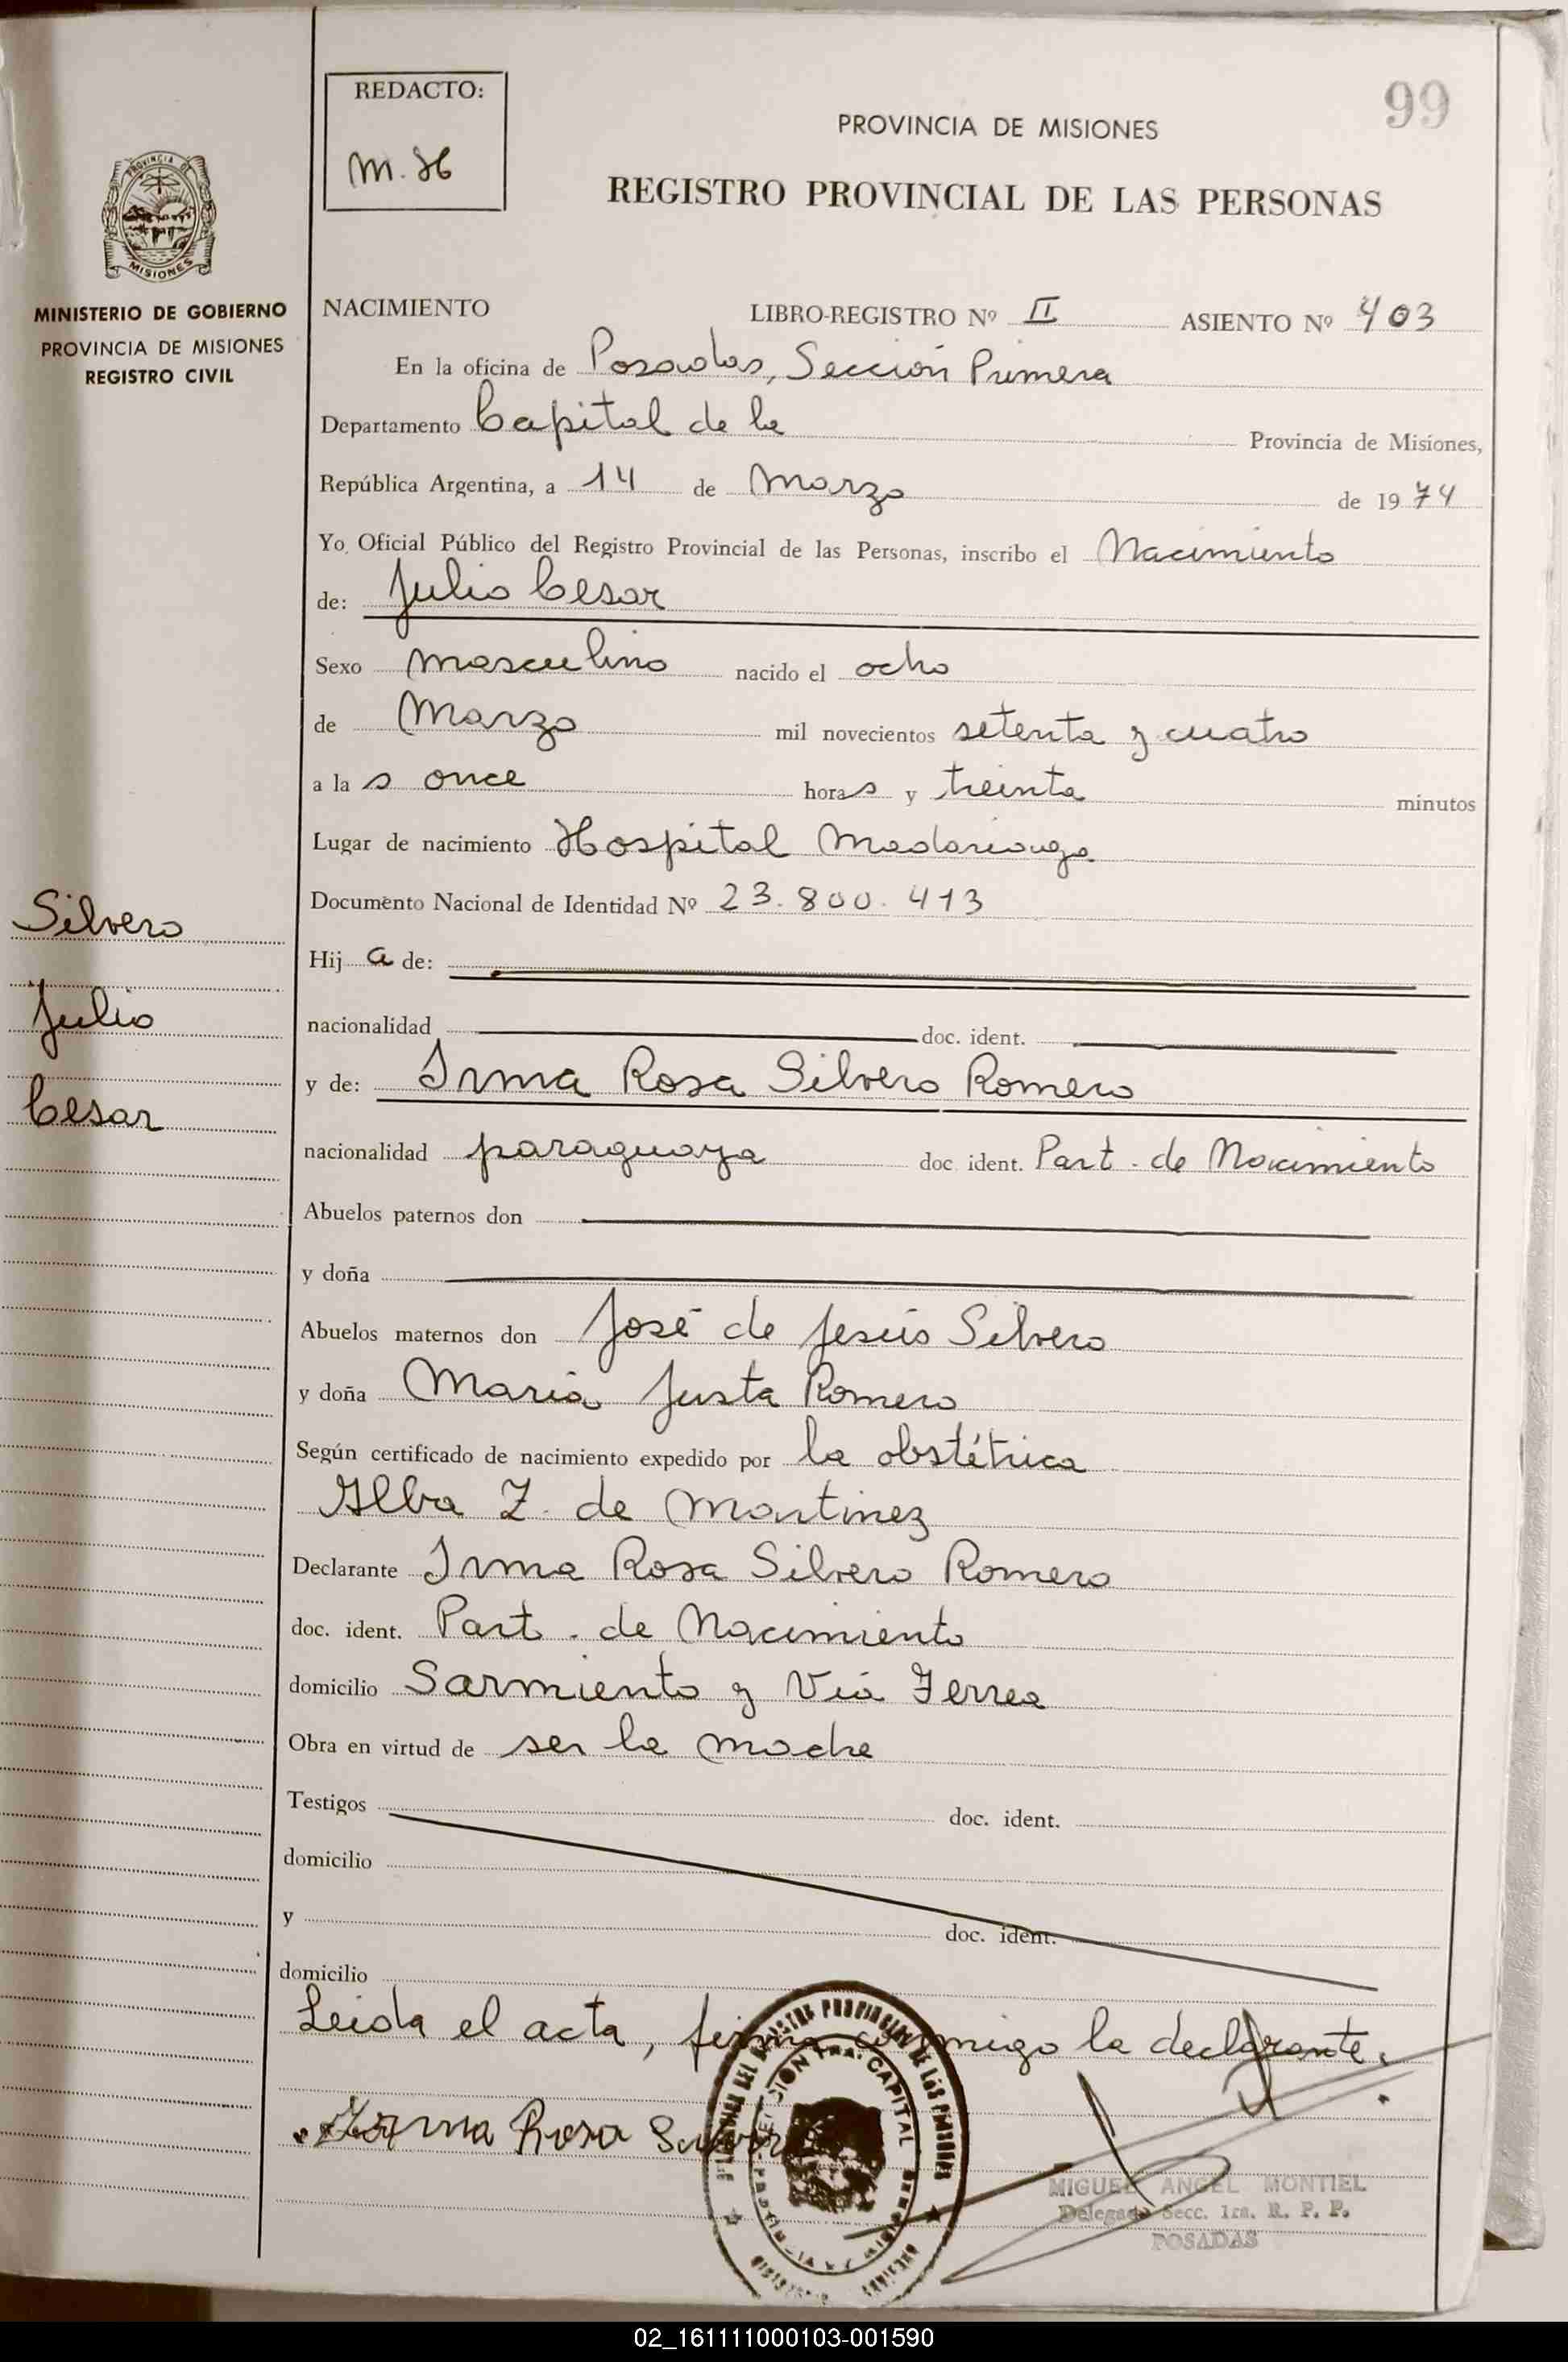 REDACTO:
M. H
99
PROVINCIA DE MISIONES
REGISTRO PROVINCIAL DE LAS PERSONAS
PROVINCIA DE
MISIONES
MINISTERIO DE GOBIERNO
PROVINCIA DE MISIONES
REGISTRO CIVIL
NACIMIENTO LIBRO-REGISTRO Nº II ASIENTO Nº 403
En la oficina de Posadas, Sección Primera
Departamento Capital de la Provincia de Misiones,
República Argentina, a 14 de Marzo de 1974
Yo, Oficial Público del Registro Provincial de las Personas, inscribo el Nacimiento
de: Julio Cesar
Sexo masculino nacido el ocho
de Marzo mil novecientos setenta y cuatro
a las once horas y treinta minutos
Lugar de nacimiento Hospital Madariaga
Documento Nacional de Identidad Nº 23.800.413
Silvero
Julio
Cesar
Hij a de:
nacionalidad doc. ident.
y de: Irma Rosa Silvero Romero
nacionalidad paraguaya doc. ident. Part. de Nacimiento
Abuelos paternos don
y doña
Abuelos maternos don José de Jesús Silvero
y doña María Justa Romero
Según certificado de nacimiento expedido por la obstétrica
Alba Z. de Martinez
Declarante Irma Rosa Silvero Romero
doc. ident. Part. de Nacimiento
domicilio Sarmiento y Vía Ferrea
Obra en virtud de ser la madre
Testigos doc. ident.
domicilio
y doc. ident.
domicilio
Leida el acta, firma conmigo la declarante.
Irma Rosa
CAPITAL
MIGUEL ANGEL MONTIEL
Delegado Secc. 1ra. R. P. P.
POSADAS
02_161111000103-001590